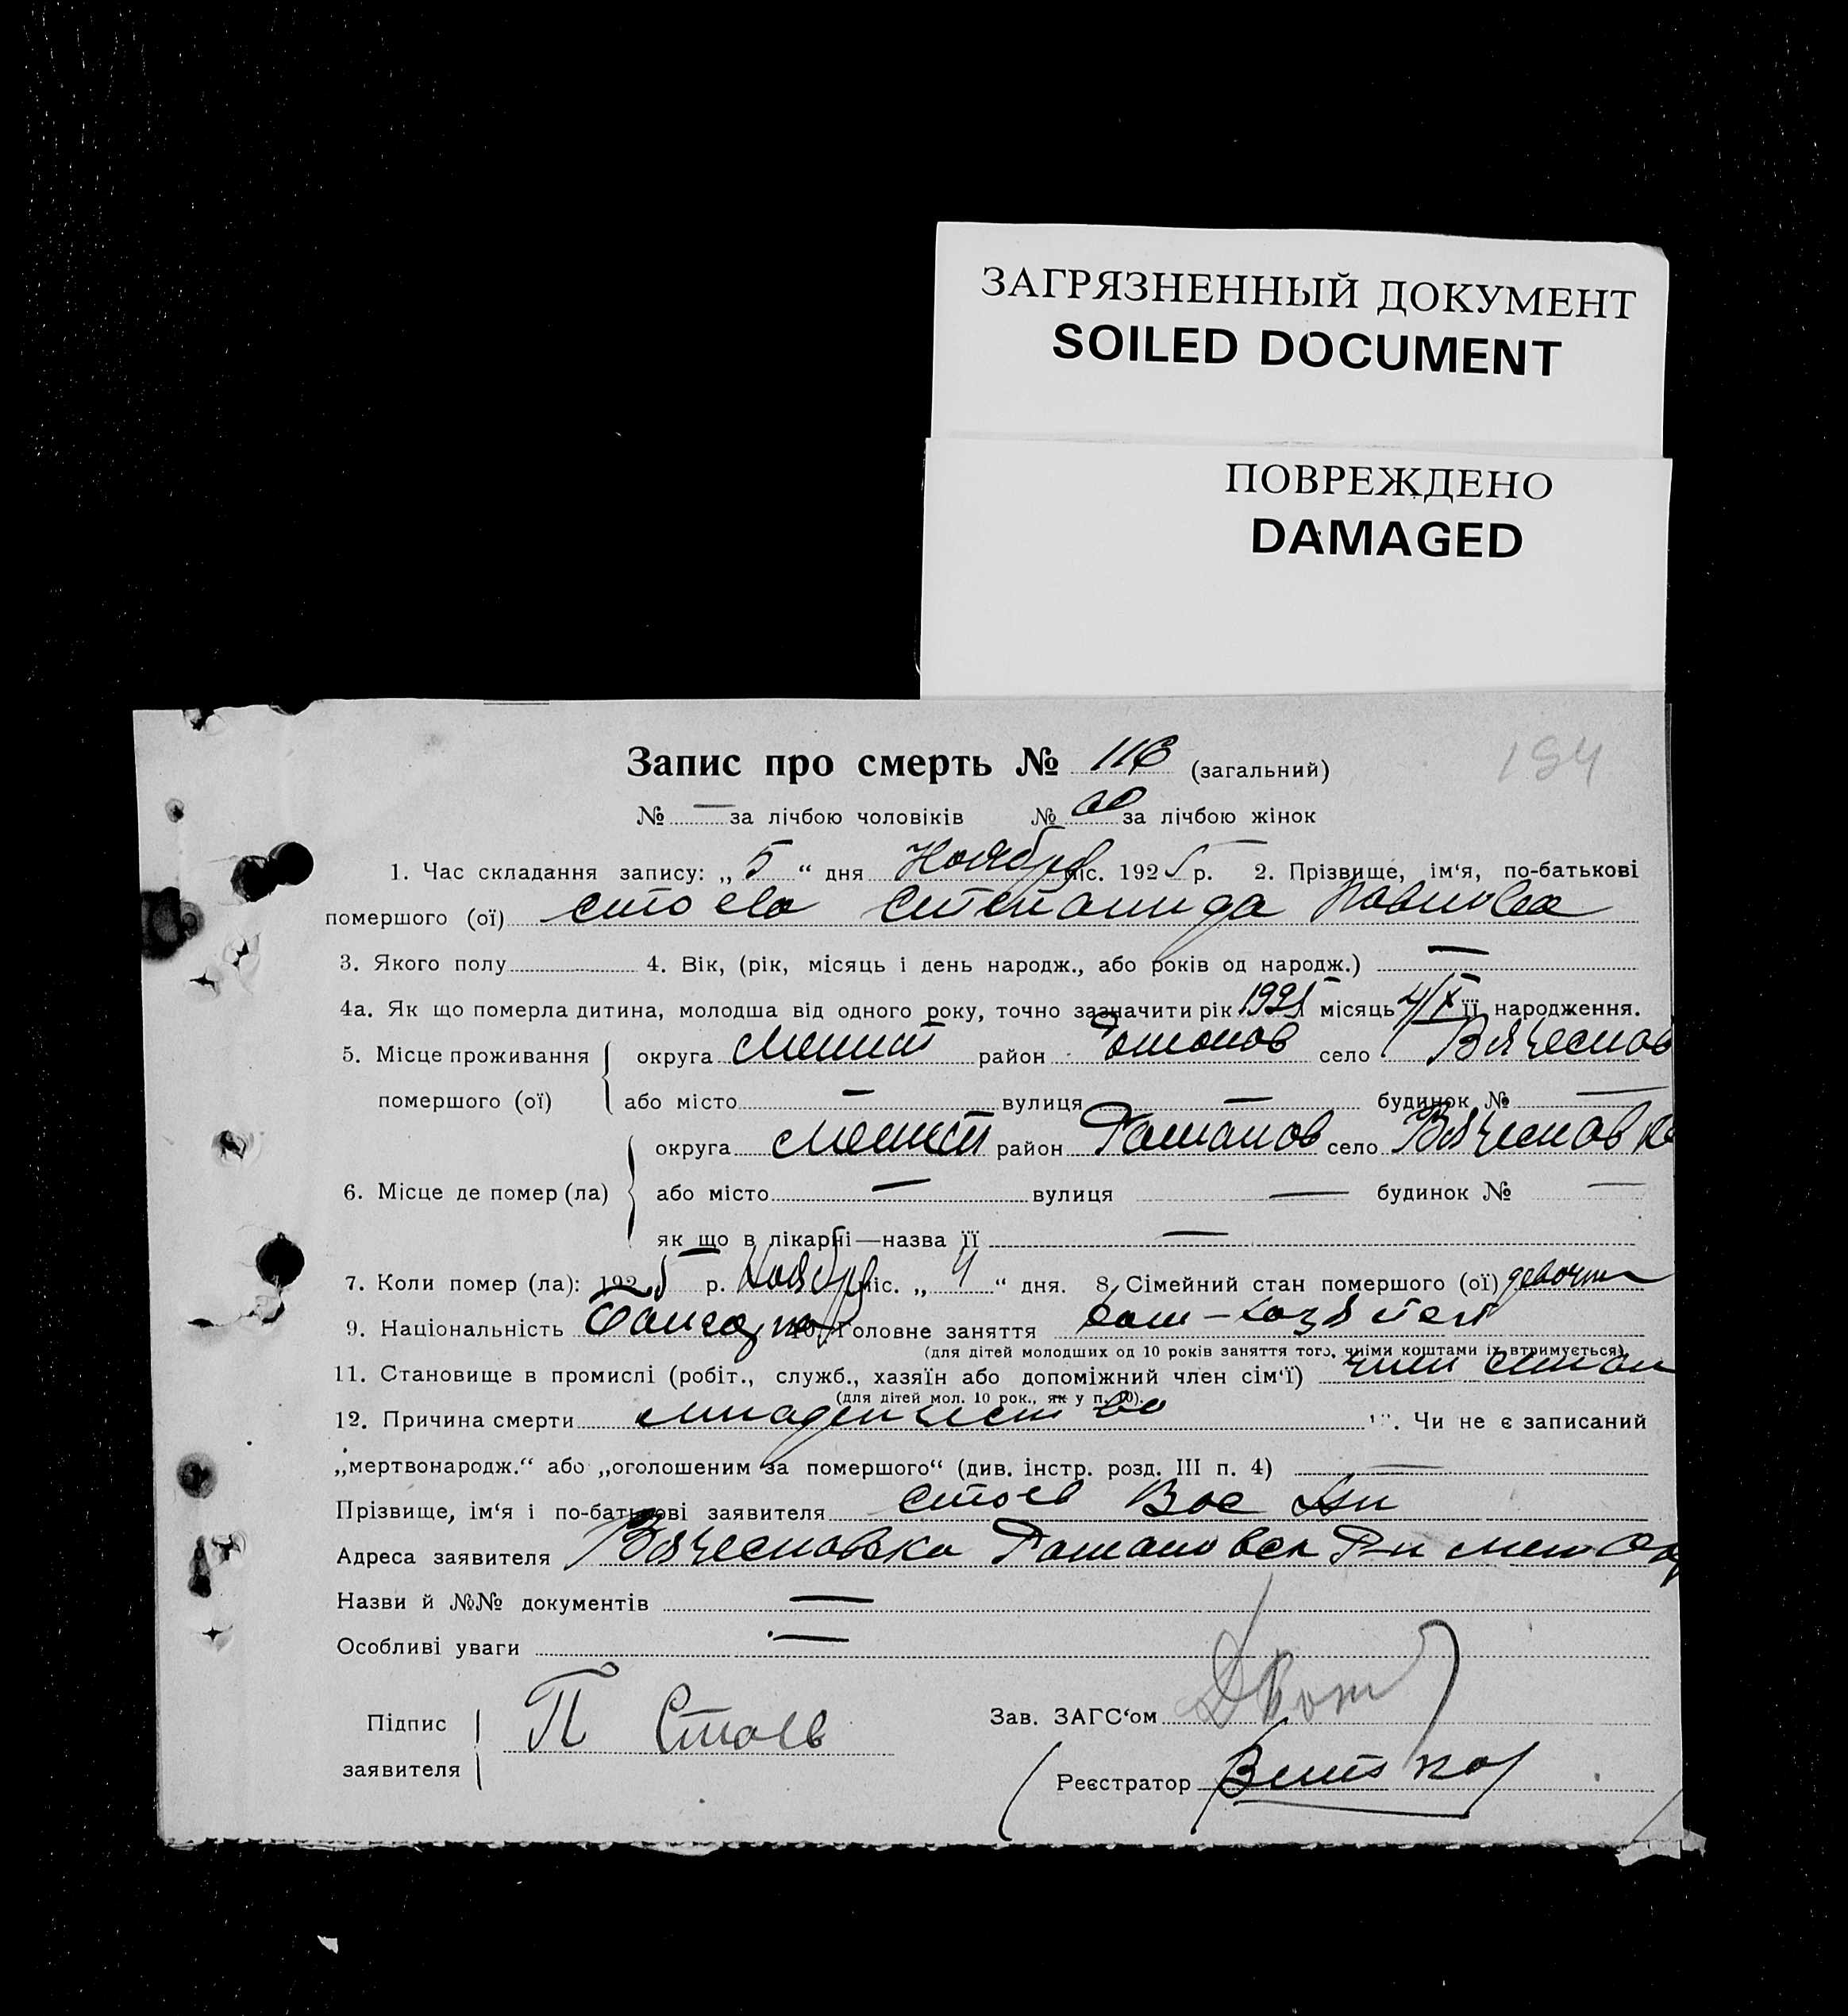 ЗАГРЯЗНЕННЫЙ ДОКУМЕНТ
SOILED DOCUMENT
ПОВРЕЖДЕНО
DAMAGED
Запис про смерть № 116 (загальний)
№ — за лічбою чоловіків № за лічбою жінок
1. Час складання запису: „ 5 “ дня Ноября міс. 1925 р. 2. Прізвище, ім‘я, по-батькові
помершого (ої) Стоева Степанида Павловна
3. Якого полу 4. Вік, (рік, місяць і день народж., або років од народж.) —
4а. Як що померла дитина, молодша від одного року, точно зазначити рік 1925 місяць її народження.
5. Місце проживання округа Мелит район Романов село Вячеслов
помершого (ої) або місто — вулиця — будинок № —
округа Мелит район Романов село Вячеславка
6. Місце де помер (ла) або місто — вулиця — будинок № —
як що в лікарні—назва її —
7. Коли помер (ла): 1925 р. Ноября міс. „ 4 “ дня. 8. Сімейний стан померш​ого (ої) девочка
9. Національність Болгарка 10. Головне заняття
(для дітей молодших од 10 років заняття того, чиїми коштами їх втримується)
11. Становище в промислі (робіт., служб., хазяїн або допоміжний член сім‘ї) член
(для дітей мол. 10 рок., як у п. 10).
12. Причина смерти младенчество Чи не є записаний
„мертвонародж.“ або „оголошеним за померш​ого“ (див. інстр. розд. III п. 4) —
Прізвище, ім‘я і по-батькові заявителя Стоев Вас
Адреса заявителя Вячеславка Романовск Р-н Мел Окр
Назви й №№ документів —
Особливі уваги —
Підпис П Стоев Зав. ЗАГС‘ом
заявителя Реєстратор